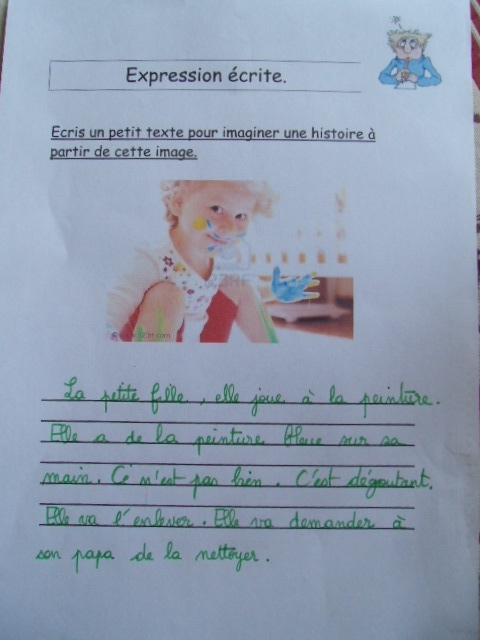 Expression écrite.
Ecris un petit texte pour imaginer une histoire à
partir de cette image.
La petite fille, elle joue à la peinture.
Elle a de la peinture bleue sur sa
main. Ce n'est pas bien. C'est dégoutant.
Elle va l'enlever. Elle va demander à
son papa de la nettoyer.